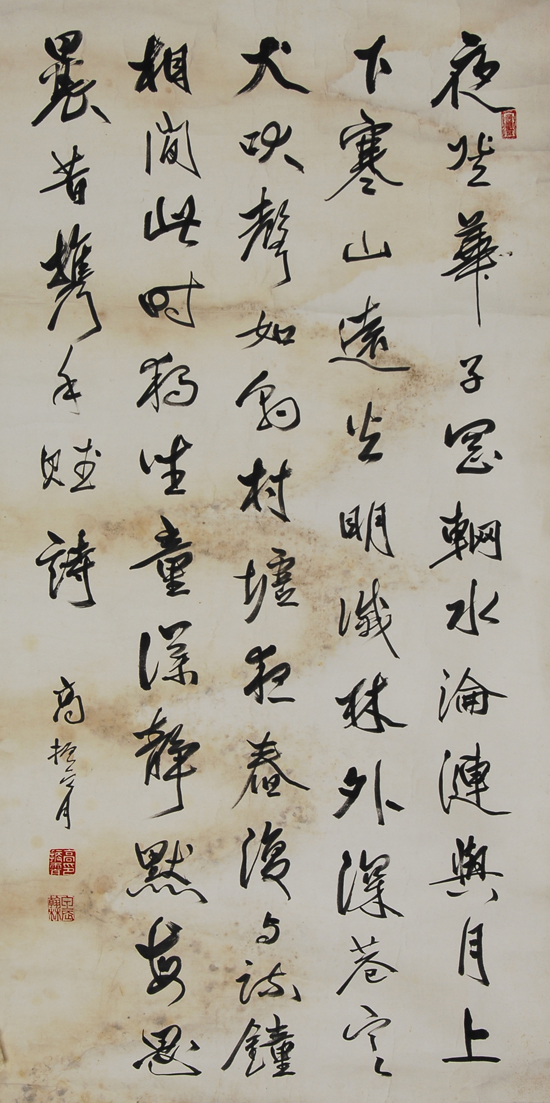 夜登華子岡輞水淪漣與月上
下寒山遠火明滅林外深巷寒
犬吠聲如豹村墟夜舂復与疏鐘
相間此時獨坐童僕靜默每思
曩昔攜手賦詩
高振霄
高印振霄
甲辰翰林